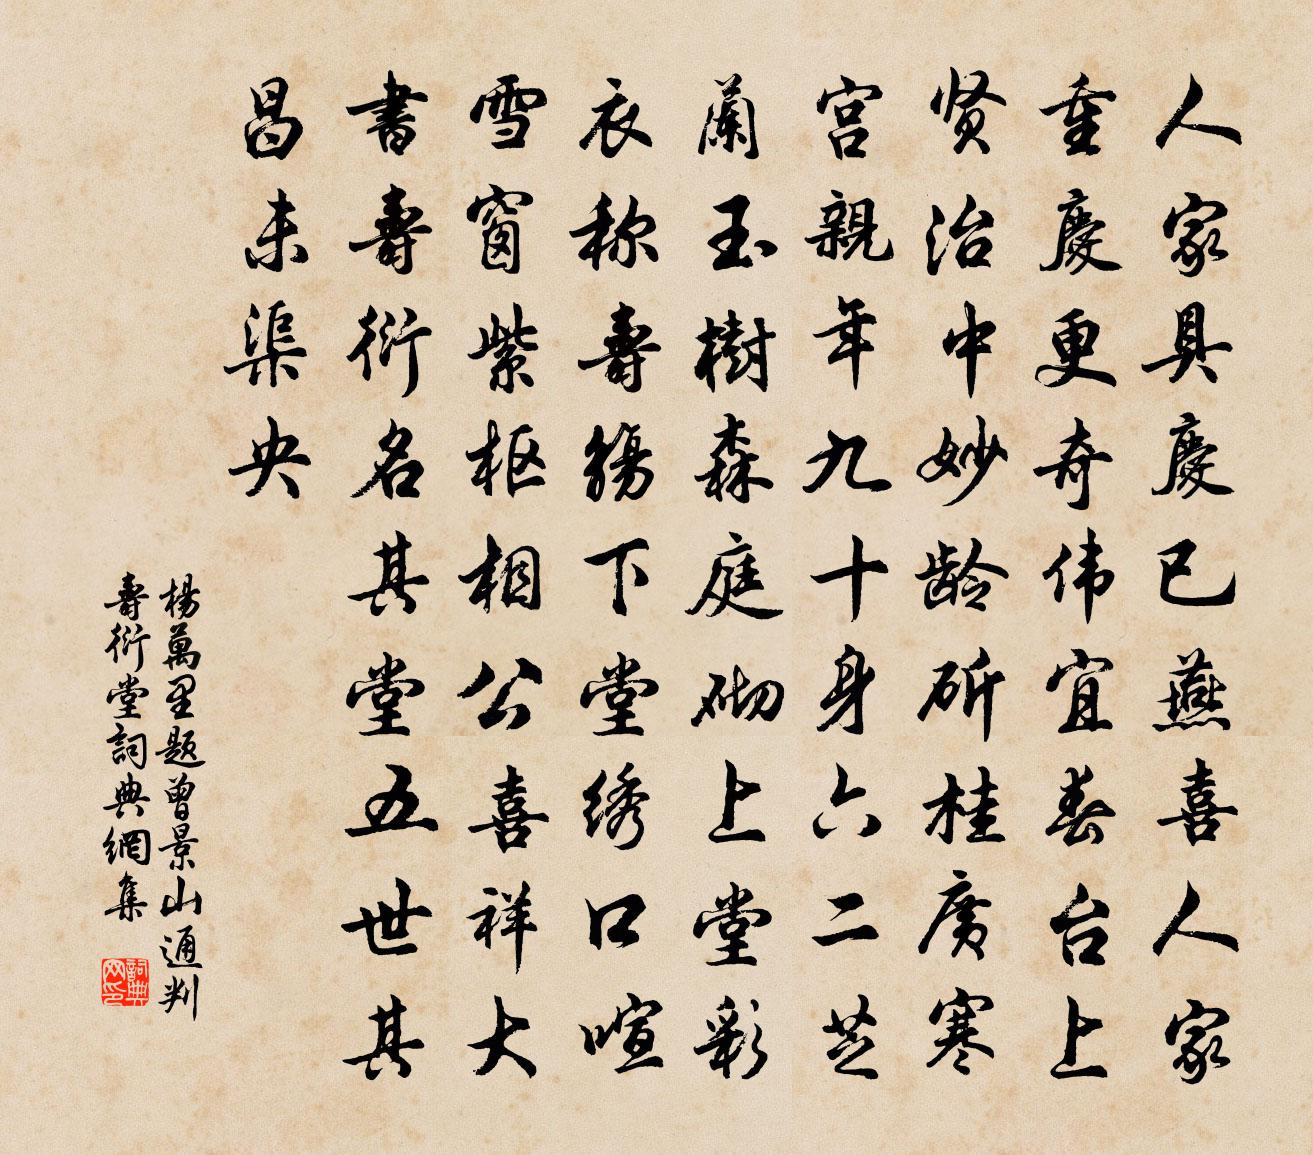 人家具慶已燕喜人家
重慶更奇伟宜春台上
贤治中妙龄斫桂廣寒
宫親年九十身六二芝
蘭玉樹森庭砌上堂彩
衣称壽觴下堂绣口喧
雪窗紫枢相公喜祥大
書壽衍名其堂五世其
昌未渠央
楊萬里题曾景山通判
壽衍堂詞典網集
詞典网印